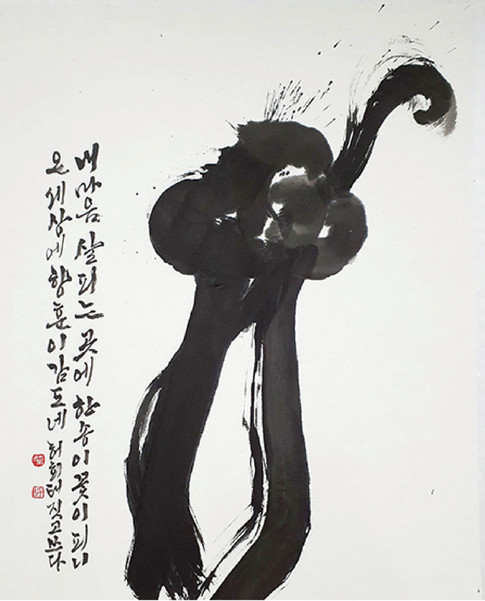 내 마음 살피는 곳에 한 송이 꽃이 피니
온 세상에 향훈이 감도네 허회태 짓고 쓰다